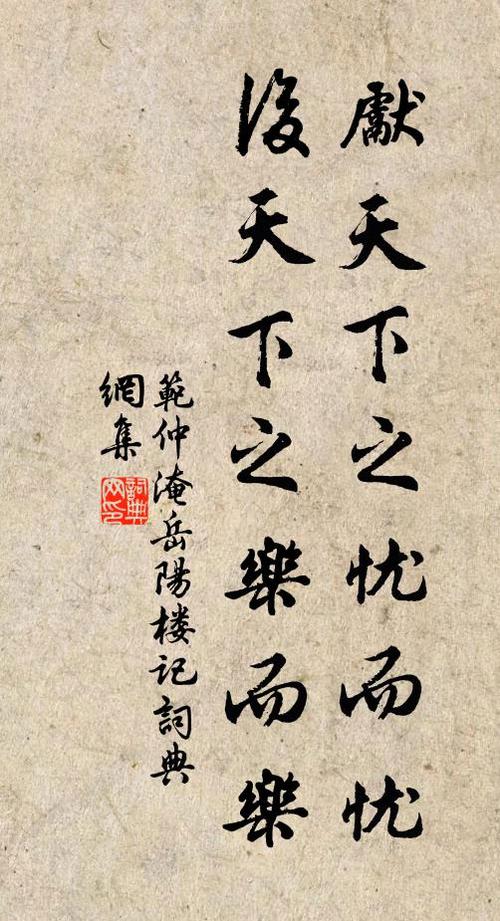 獻天下之忧而忧
後天下之樂而樂
範仲淹岳陽楼记詞典
網集
詞典
网印